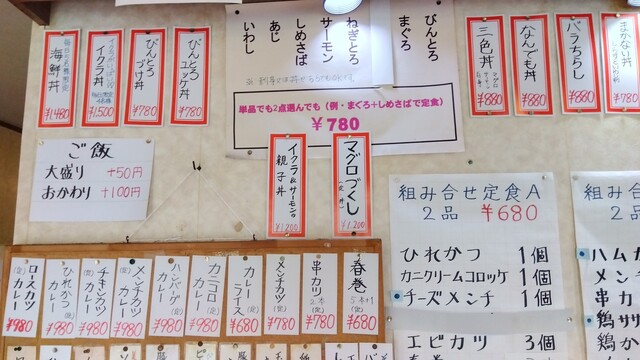 海鮮丼
¥1,480
イクラ丼
¥1,500
びんとろ
づけ丼
¥780
びんとろ
ユッケ丼
¥780
いわし
あじ
しめさば
サーモン
ねぎとろ
まぐろ
びんとろ
単品でも2点選んでも（例・まぐろ+しめさばで定食）
¥780
三色丼
¥880
なんでも丼
¥880
バラちらし
¥880
まかない丼
¥880
ご飯
大盛り +50円
おかわり +100円
イクラ&サーモンの
親子丼
¥1,200
マグロづくし
¥1,200
組み合せ定食A
2品 ¥680
ひれかつ 1個
カニクリームコロッケ 1個
チーズメンチ 1個
エビカツ 3個
春巻
組み合せ定食
2品
ハムカ
メンチ
串カ
鶏ササ
ロースカツ
カレー
¥980
ひれかつ
カレー
¥980
チキンカツ
カレー
(定)
¥980
メンチカツ
カレー
(定)
¥980
ハンバーグ
カレー
(定)
¥980
カニコロ
カレー
(定)
¥980
カレー
ライス
(定)
¥680
メンチカツ
(定)
¥780
串カツ
2本
(定)
¥780
春巻
5本
¥680